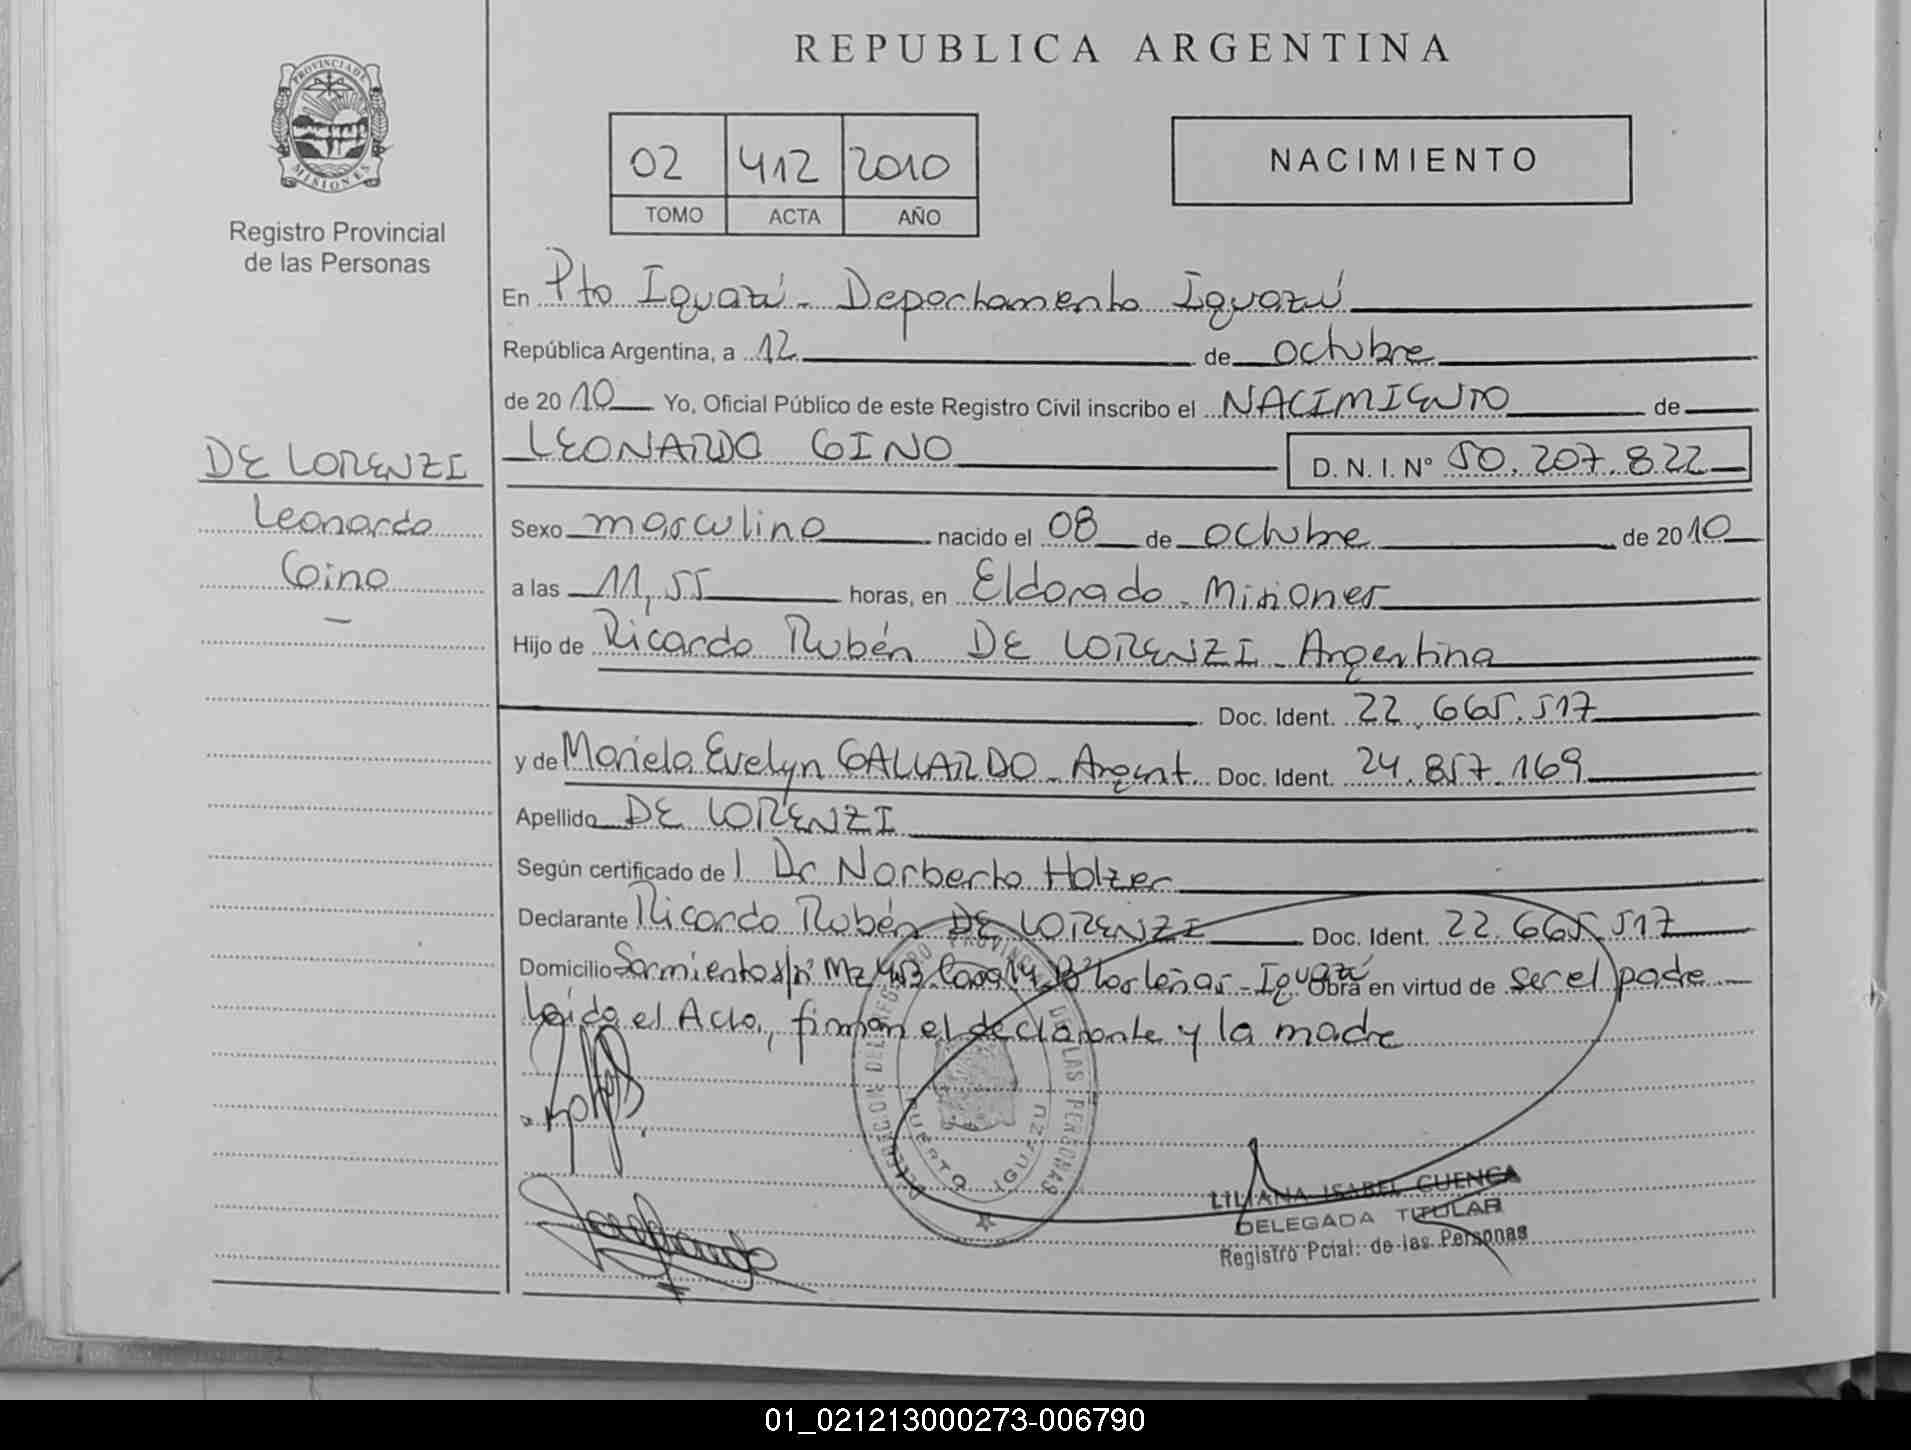 REPUBLICA ARGENTINA
PROVINCIA DE
MISIONES
Registro Provincial
de las Personas
02 412 2010
TOMO ACTA AÑO
NACIMIENTO
En Pto Iguazú - Departamento Iguazú
República Argentina, a 12 de octubre
de 2010 Yo, Oficial Público de este Registro Civil inscribo el NACIMIENTO de
LEONARDO GINO D. N. I. Nº 50.207.822
DE LORENZI
Leonardo
Gino
Sexo masculino nacido el 08 de octubre de 2010
a las 11,55 horas, en Eldorado - Misiones
Hijo de Ricardo Rubén DE LORENZI - Argentina
Doc. Ident. 22.665.517
y de Mariela Evelyn GALLARDO - Argent. Doc. Ident. 24.857.169
Apellido DE LORENZI
Según certificado de l Dr Norberto Holzer
Declarante Ricardo Rubén DE LORENZI Doc. Ident. 22.665.517
Domicilio Sarmiento s/nº Mz Casa Bº Las Leñas - Iguazú Obra en virtud de ser el padre
Leída el Acta, firman el declarante y la madre
DIRECCION DEL REGISTRO PROVINCIAL DE LAS PERSONAS
PUERTO IGUAZU
LILIANA ISABEL CUENCA
DELEGADA TITULAR
Registro Pcial. de las Personas
01_021213000273-006790